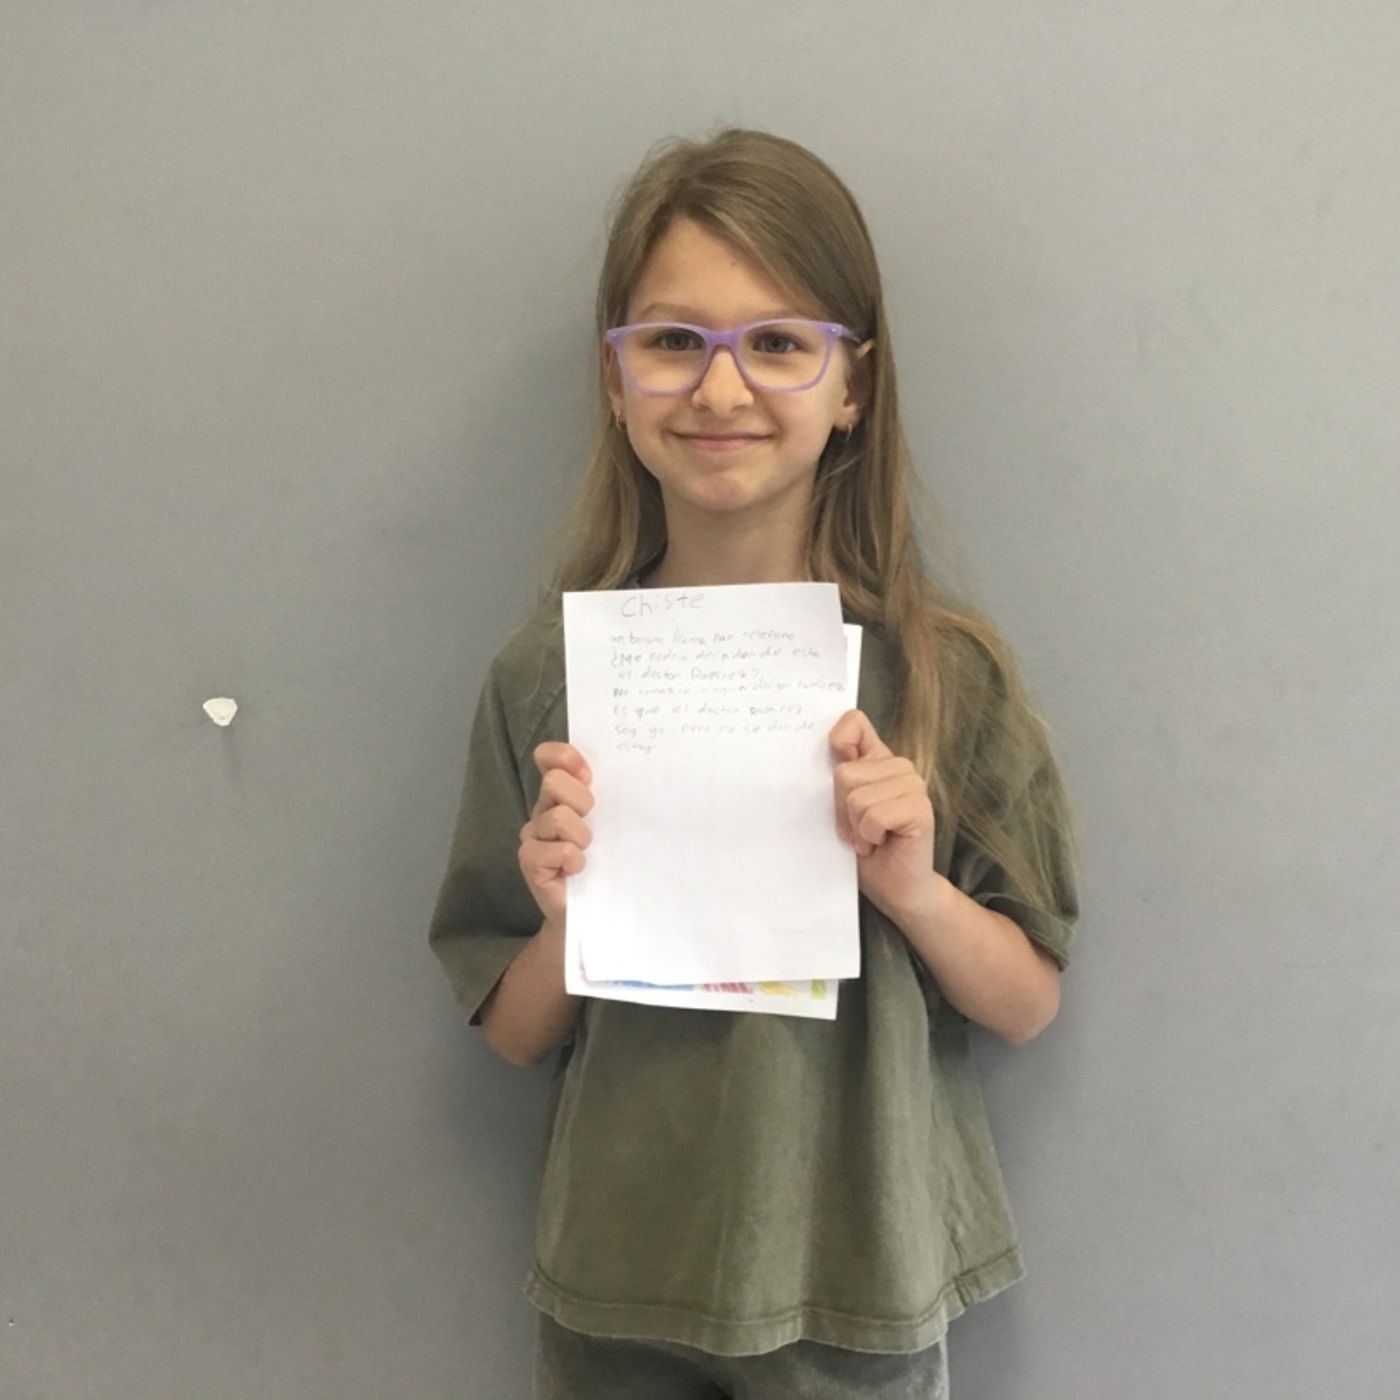 Chiste
un borracho llama por telefono
¿Me podria decir donde esta
el doctor Ramirez?
No conozco ningun doctor ramirez
Es que el doctor Ramirez
soy yo pero no se donde
estoy